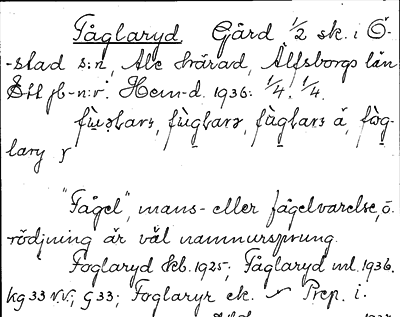 Fåglaryd. Gård 1/2 sk. i Ö-
-stad s:n, Ale härad, Älfsborgs län
Ett jb-n:r. Hem-d. 1936: 1/4. 1/4.
å,
lary

"Fågel", mans- eller fågelvarelse, ö.
rödjning är väl namnursprung.
Foglaryd Skb. 1925; Fåglaryd ml. 1936.
kg 33 N.V.; G 33; Foglaryr ek. Prep. i.